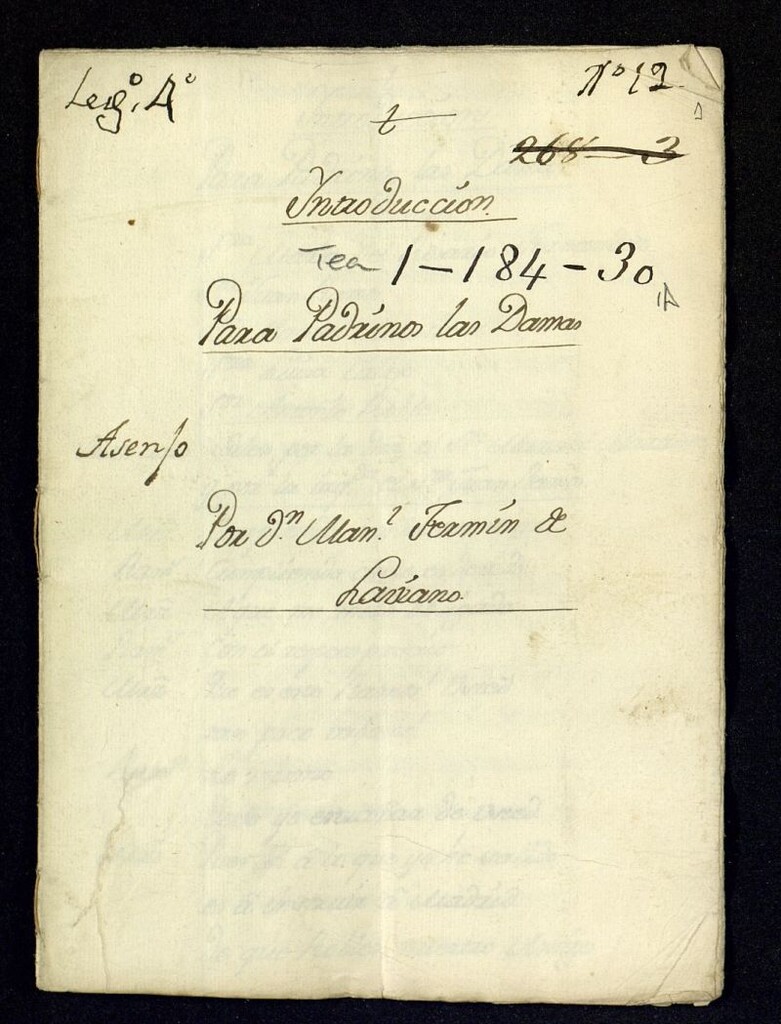 Leg.º 4º
Nº 12
268-3
Introducción
Tea 1-184-30
1A
Para Padrinos las Damas
Asenjo
Por Dn. Manl. Fermín de
Laviano